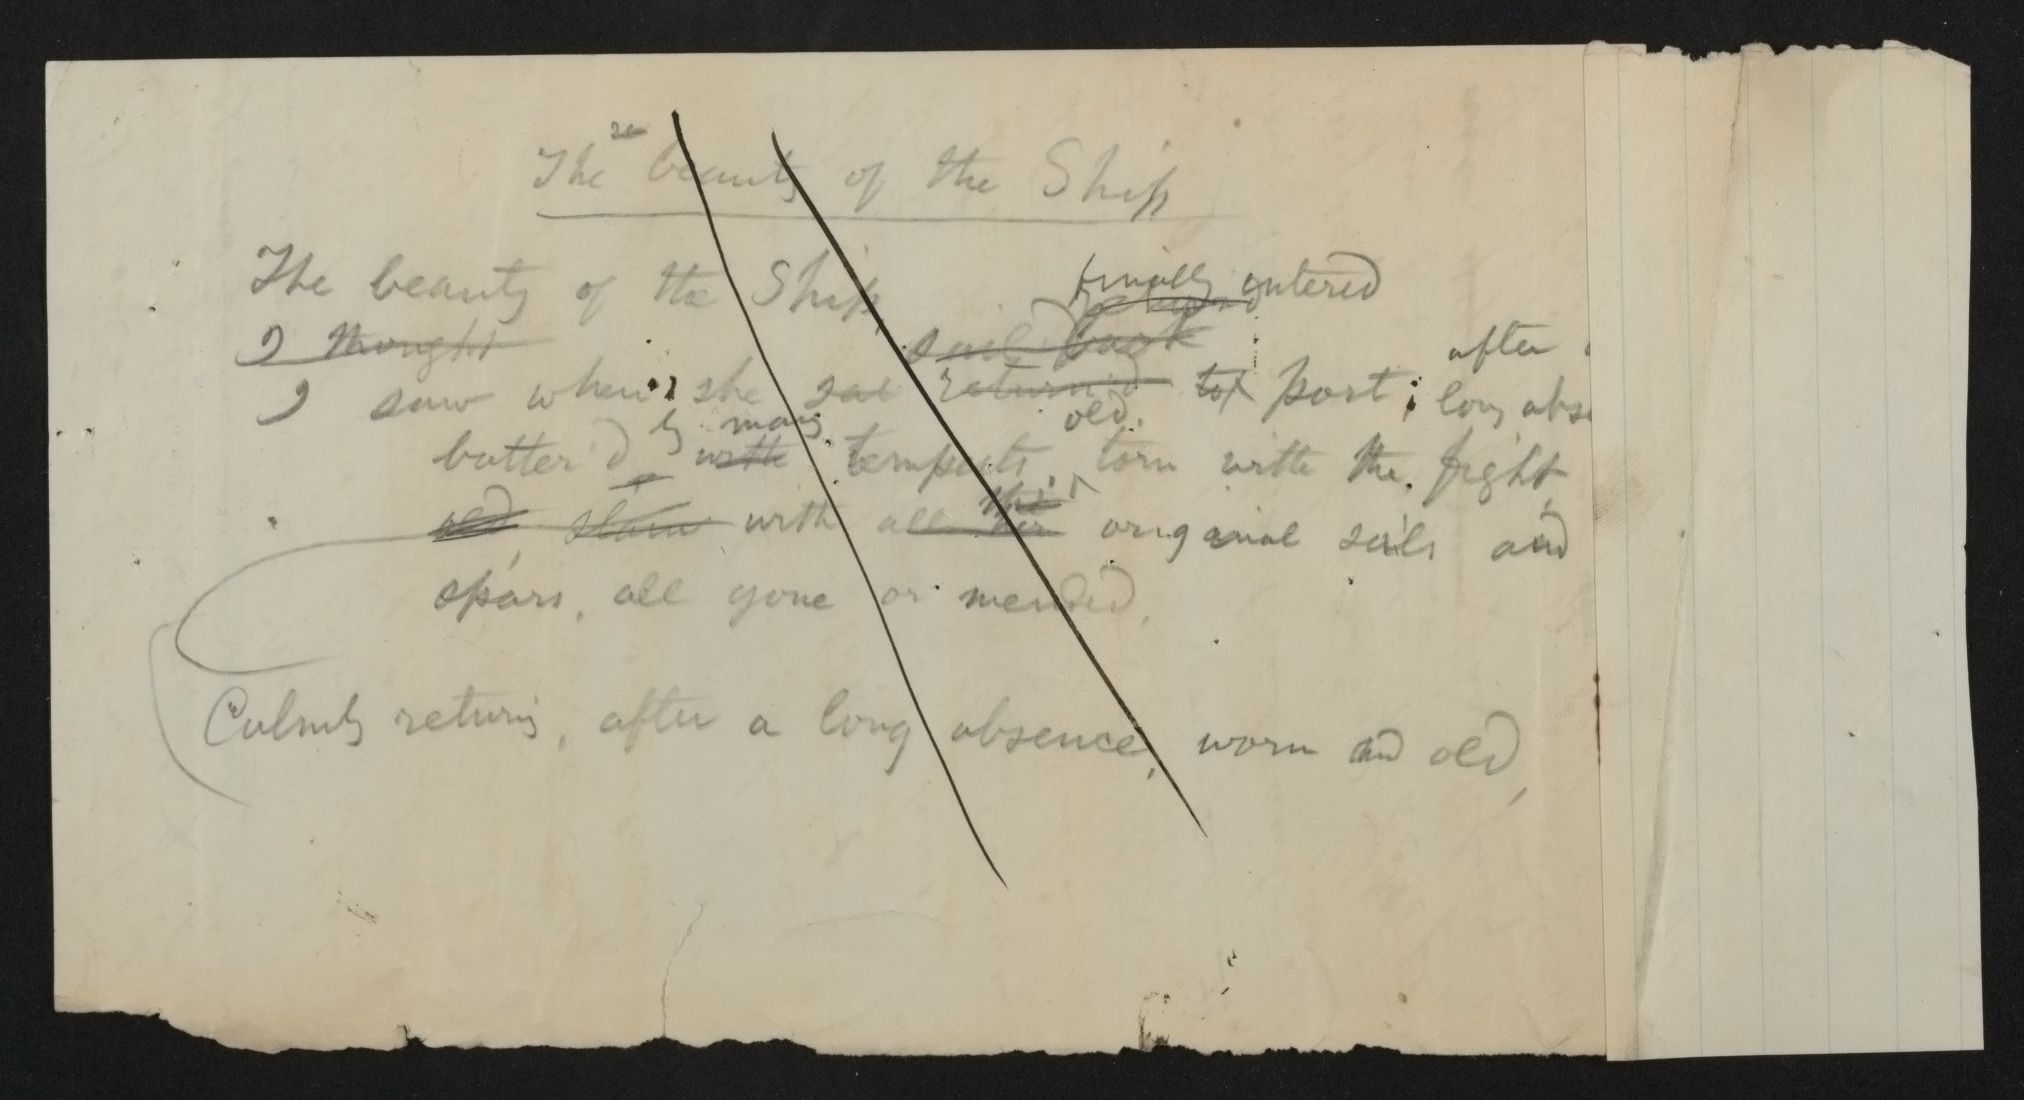 The beauty of the Ship
The beauty of the Ship,
finally entered
I thought
sail back
after
I saw when, she sae return'd to port; long abse
by many
old.
batter'd with tempests, torn with the fight,
old slow with all original sails and
spars, all gone or mended,
returning, after a long absence, worn and old,